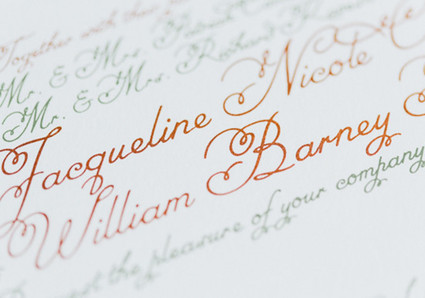 Together with their
Mr. & Mrs. Patrick
Mr. & Mrs. Richard
Jacqueline Nicole
William Barney
the pleasure of your company